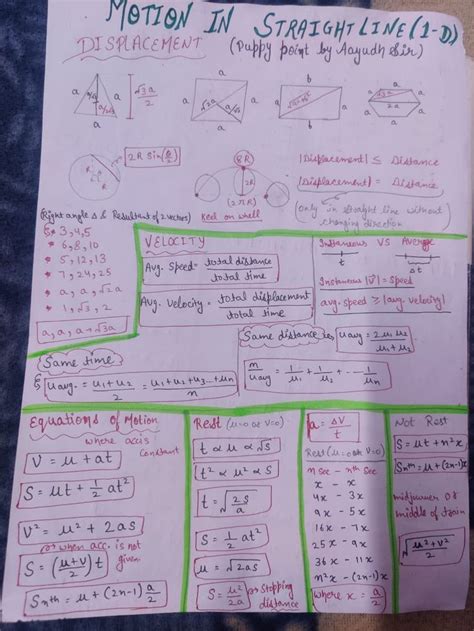 MOTION IN STRAIGHTLINE (1-D)
DISPLACEMENT (Puppy point by Aayudh Sir)
a a √3a/2 a
a √2a a a
b a a b
a √3a a 2a a
2R Sin(θ/2)
R R θ
2R
(2πR)
Keel on whell
|Displacement| ≤ Distance
|Displacement| = Distance
(only in straight line without
changing direction)
(Right angle Δ & Resultant of 2 vectors)
3,4,5
• 6,8,10
• 5,12,13
• 7,24,25
• a, a, √2a
• 1, √3, 2
a, a, a → √3a
VELOCITY
Avg. Speed = total distance / total time
Avg. Velocity = total displacement / total time
Instaneous VS Average
t Δt
Instaneous |V| = Speed
avg. speed ≥ |avg. velocity|
Same time
u avg. = u1 + u2 / 2 = u1 + u2 + u3... + un / n
Same distance
u avg = 2 u1 u2 / u1 + u2
n / u avg = 1/u1 + 1/u2 + --- 1/un
Equations of Motion
where acc is constant
V = u + at
S = ut + 1/2 at²
V² = u² + 2as
or when acc. is not given
S = (u+v / 2) t
S nth = u + (2n-1) a/2
Rest (u=0 or V=0)
t ∝ u ∝ √S
t² ∝ u² ∝ S
t = √2S/a
S = 1/2 at²
u = √2as
S = u²/2a → Stopping distance
a = ΔV / t
Rest (u=0 or V=0)
n sec - nth sec
x - x
4x - 3x
9x - 5x
16x - 7x
25x - 9x
36x - 11x
n²x - (2n-1)x
where x = a/2
Not Rest
S = ut + n²x
S nth = u + (2n-1)x
or
middle of train
√u²+v²/2